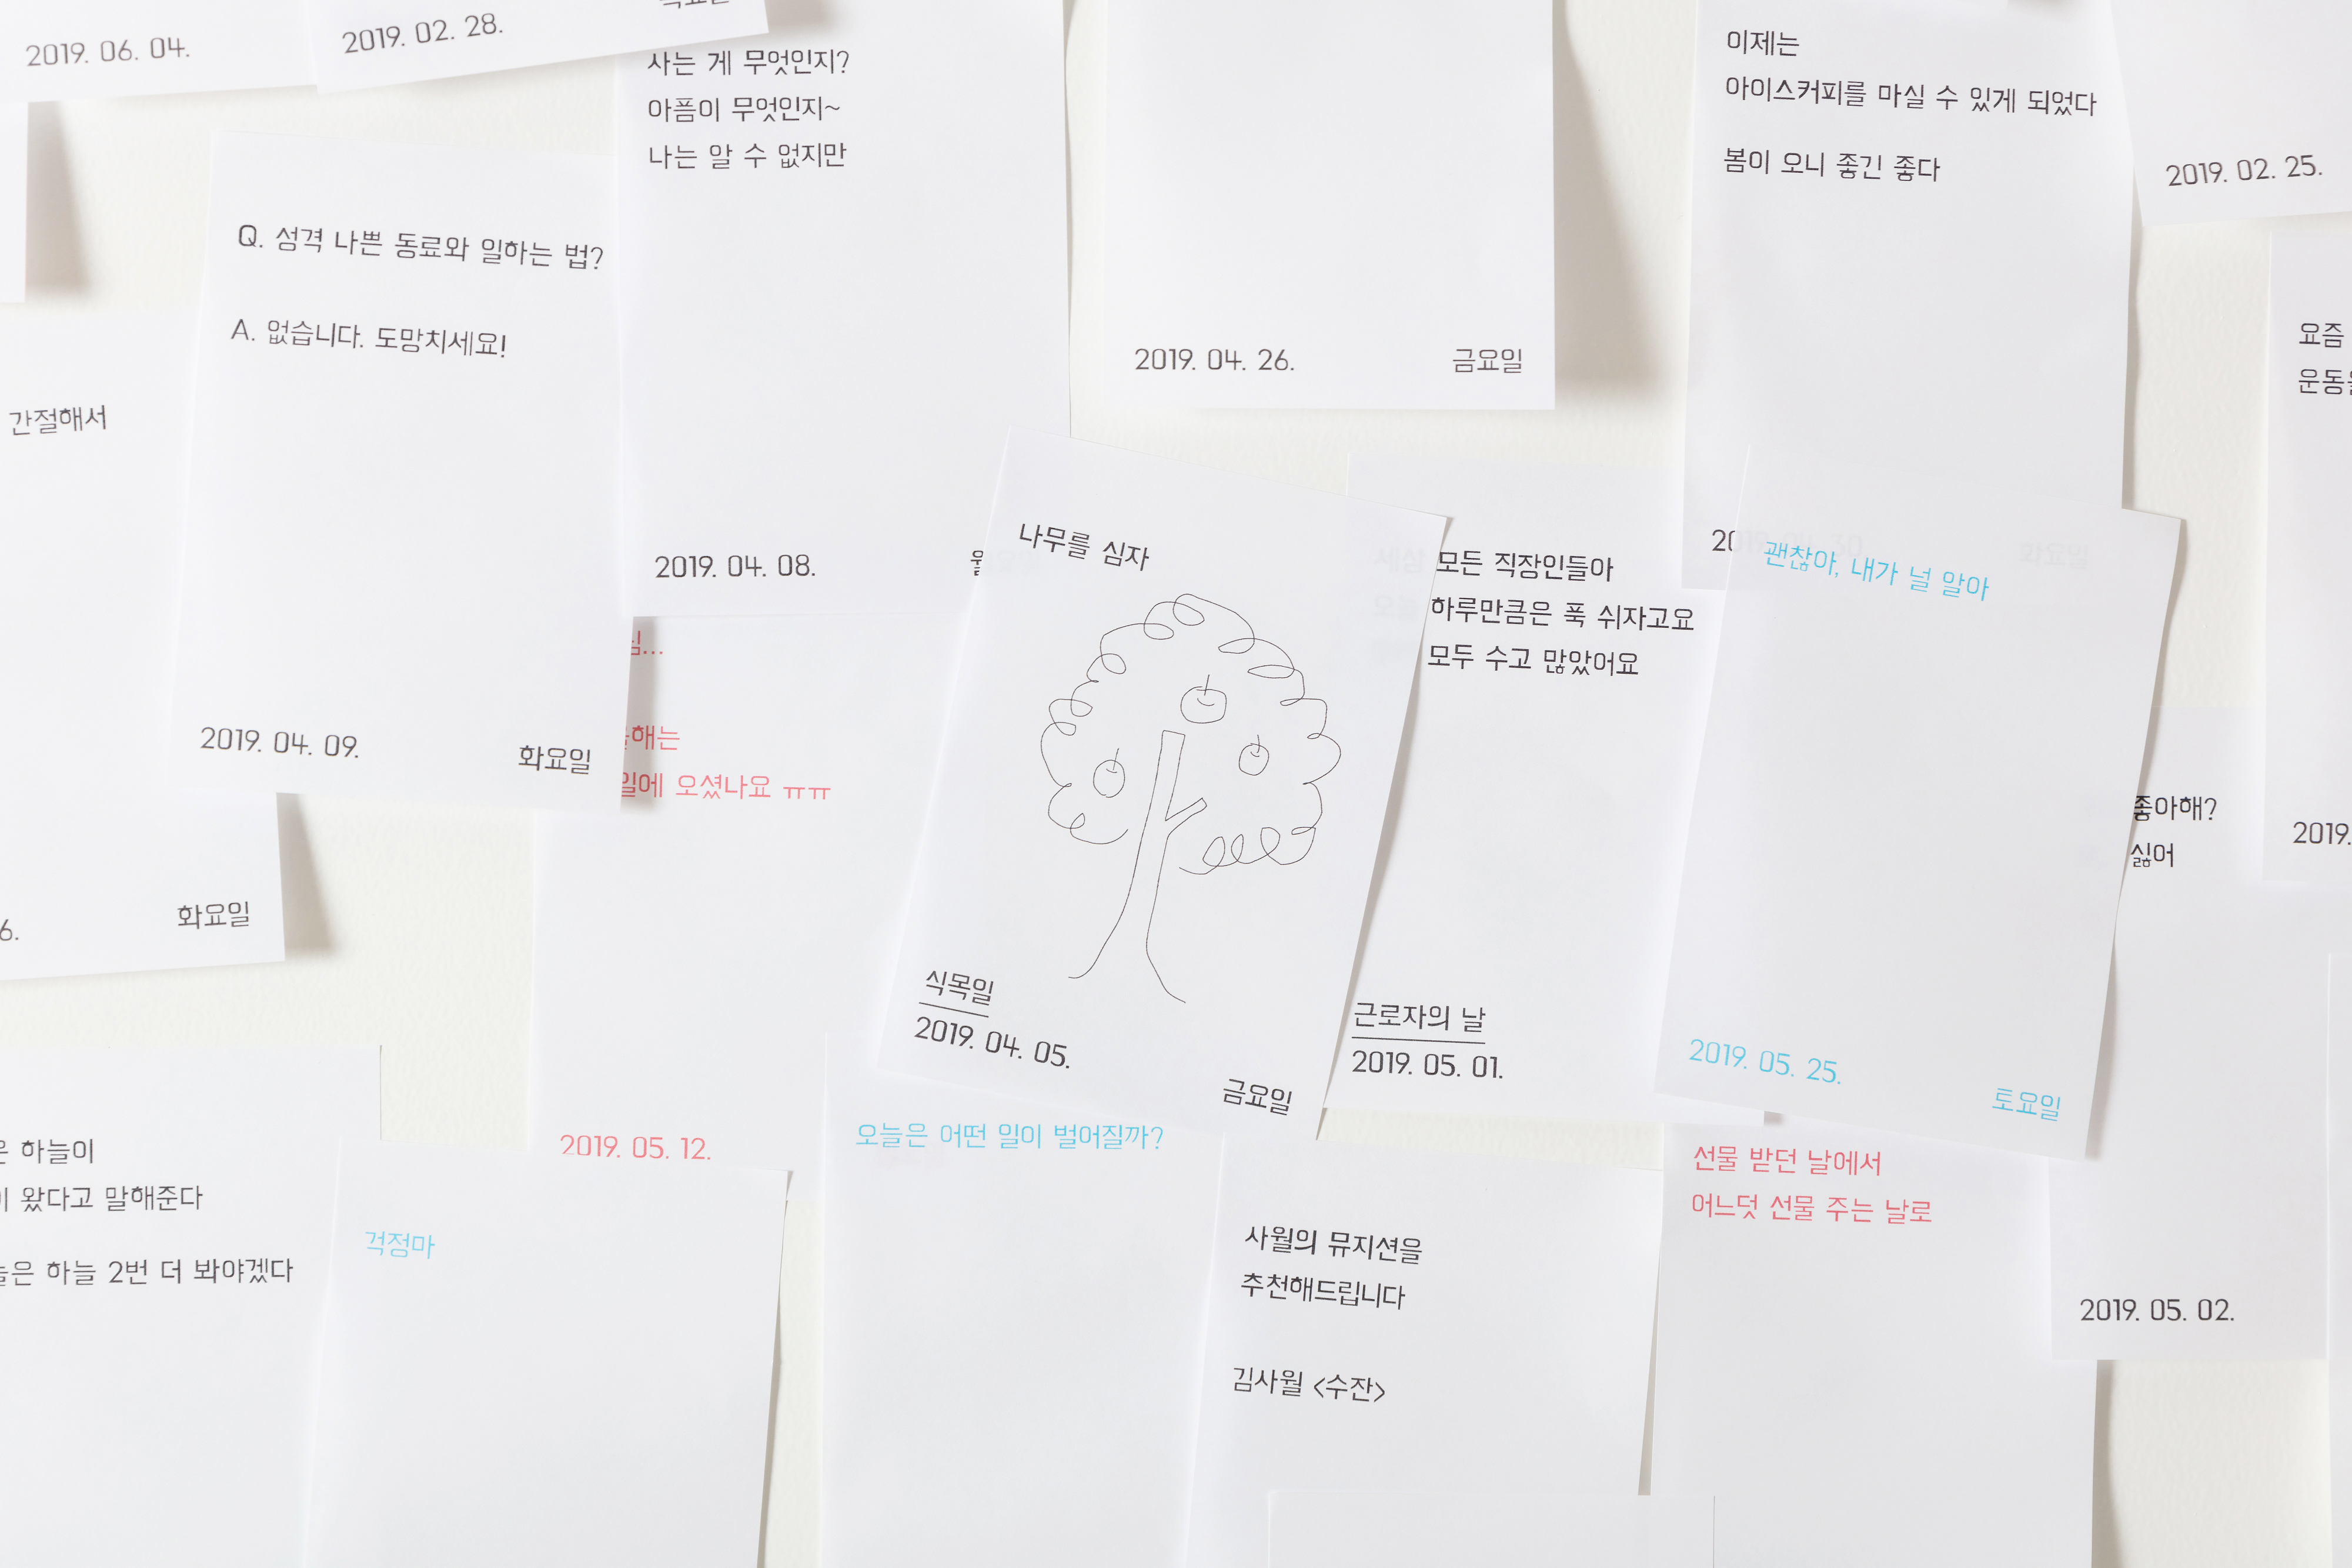 2019. 06. 04.
2019. 02. 28.
사는 게 무엇인지?
아픔이 무엇인지~
나는 알 수 없지만
2019. 04. 08.
2019. 04. 26.
금요일
이제는
아이스커피를 마실 수 있게 되었다
봄이 오니 좋긴 좋다
2019. 02. 25.
Q. 성격 나쁜 동료와 일하는 법?
A. 없습니다. 도망치세요!
2019. 04. 09.
화요일
간절해서
6.
화요일
요즘
나무를 심자
식목일
2019. 04. 05.
금요일
모든 직장인들아
하루만큼은 푹 쉬자고요
모두 수고 많았어요
근로자의 날
2019. 05. 01.
괜찮아, 내가 널 알아
2019. 05. 25.
토요일
좋아해?
싫어
2019. 05. 02.
2019.
오셨나요 ㅠㅠ
2019. 05. 12.
하늘이
왔다고 말해준다
하늘 2번 더 봐야겠다
걱정마
오늘은 어떤 일이 벌어질까?
사월의 뮤지션을
추천해드립니다
김사월 <수잔>
선물 받던 날에서
어느덧 선물 주는 날로